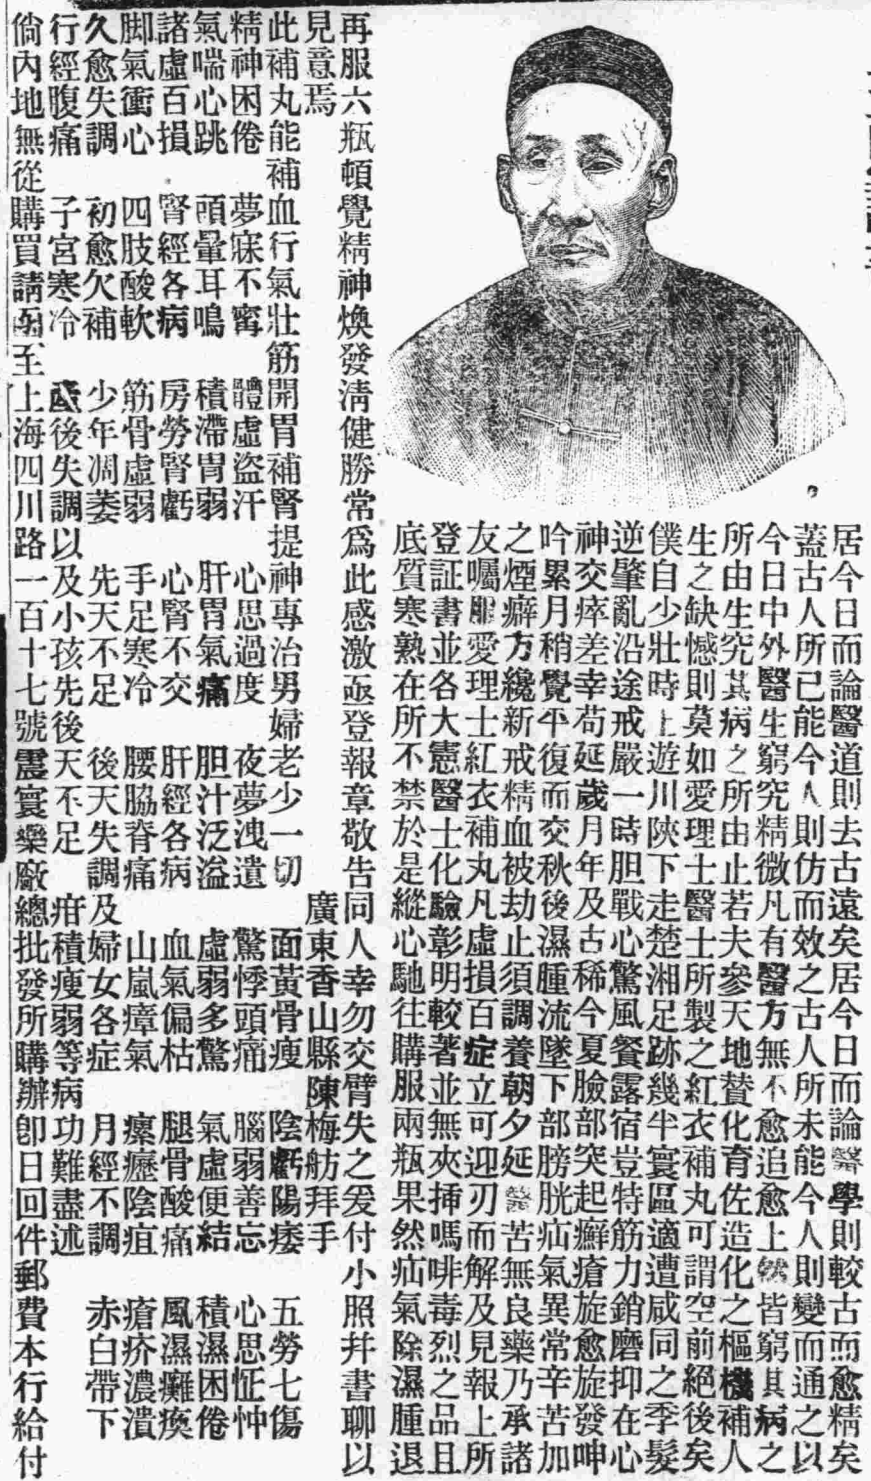 居今日而論醫道則去古遠矣居今日而論醫學則較古而愈精矣
蓋古人所已能今人則仿而效之古人所未能今人則變而通之以
今日中外醫生窮究精微凡有醫方無不愈追愈上然皆窮其病之
所由生究其病之所由止若夫參天地賛化育佐造化之樞機補人
生之缺憾則莫如愛理士醫士所製之紅衣補丸可謂空前絕後矣
僕自少壯時上遊川陝下走楚湘足跡幾半寰區適遭咸同之季髮
逆肇亂沿途戒嚴一時胆戰心驚風餐露宿豈特筋力銷磨抑在心
神交瘁差幸苟延歲月年及古稀今夏臉部突起癬瘡旋愈旋發呻
吟累月稍覺平復而交秋後濕腫流墜下部膀胱疝氣異常辛苦加
之煙癖方纔新戒精血被劫止須調養朝夕延醫苦無良藥乃承諸
友囑服愛理士紅衣補丸凡虛損百症立可迎刃而解及見報上所
登証書並各大憲醫士化驗彰明較著並無夾揷嗎啡毒烈之品且
底質寒熟在所不禁於是縱心馳往購服兩瓶果然疝氣除濕腫退
再服六瓶頓覺精神煥發淸健勝常爲此感激亟登報章敬告同人幸勿交臂失之爰付小照幷書聊以
見意焉 廣東香山縣陳梅舫拜手
此補丸能補血行氣壯筋開胃補腎提神專治男婦老少一切 面黃骨瘦 陰虧陽痿 五勞七傷
精神困倦 夢寐不寗 體虛盜汗 心思過度 夜夢洩遺 驚悸頭痛 腦弱善忘 心思怔忡
氣喘心跳 頭暈耳鳴 積滯胃弱 肝胃氣痛 胆汁泛溢 虛弱多驚 氣虛便結 積濕困倦
諸虛百損 腎經各病 房勞腎虧 心腎不交 肝經各病 血氣偏枯 腿骨酸痛 風濕癱瘓
脚氣衝心 四肢酸軟 筋骨虛弱 手足寒冷 腰脇脊痛 山嵐瘴氣 瘰癧陰疽 瘡疥濃潰
久愈失調 初愈欠補 少年凋萎 先天不足 後天失調及婦女各症 月經不調 赤白帶下
行經腹痛 子宮寒冷 產後失調以及小孩先後天不足 疳積瘦弱等病功難盡述
倘內地無從購買請函至上海四川路一百十七號震寰藥廠總批發所購辦卽日回件郵費本行給付